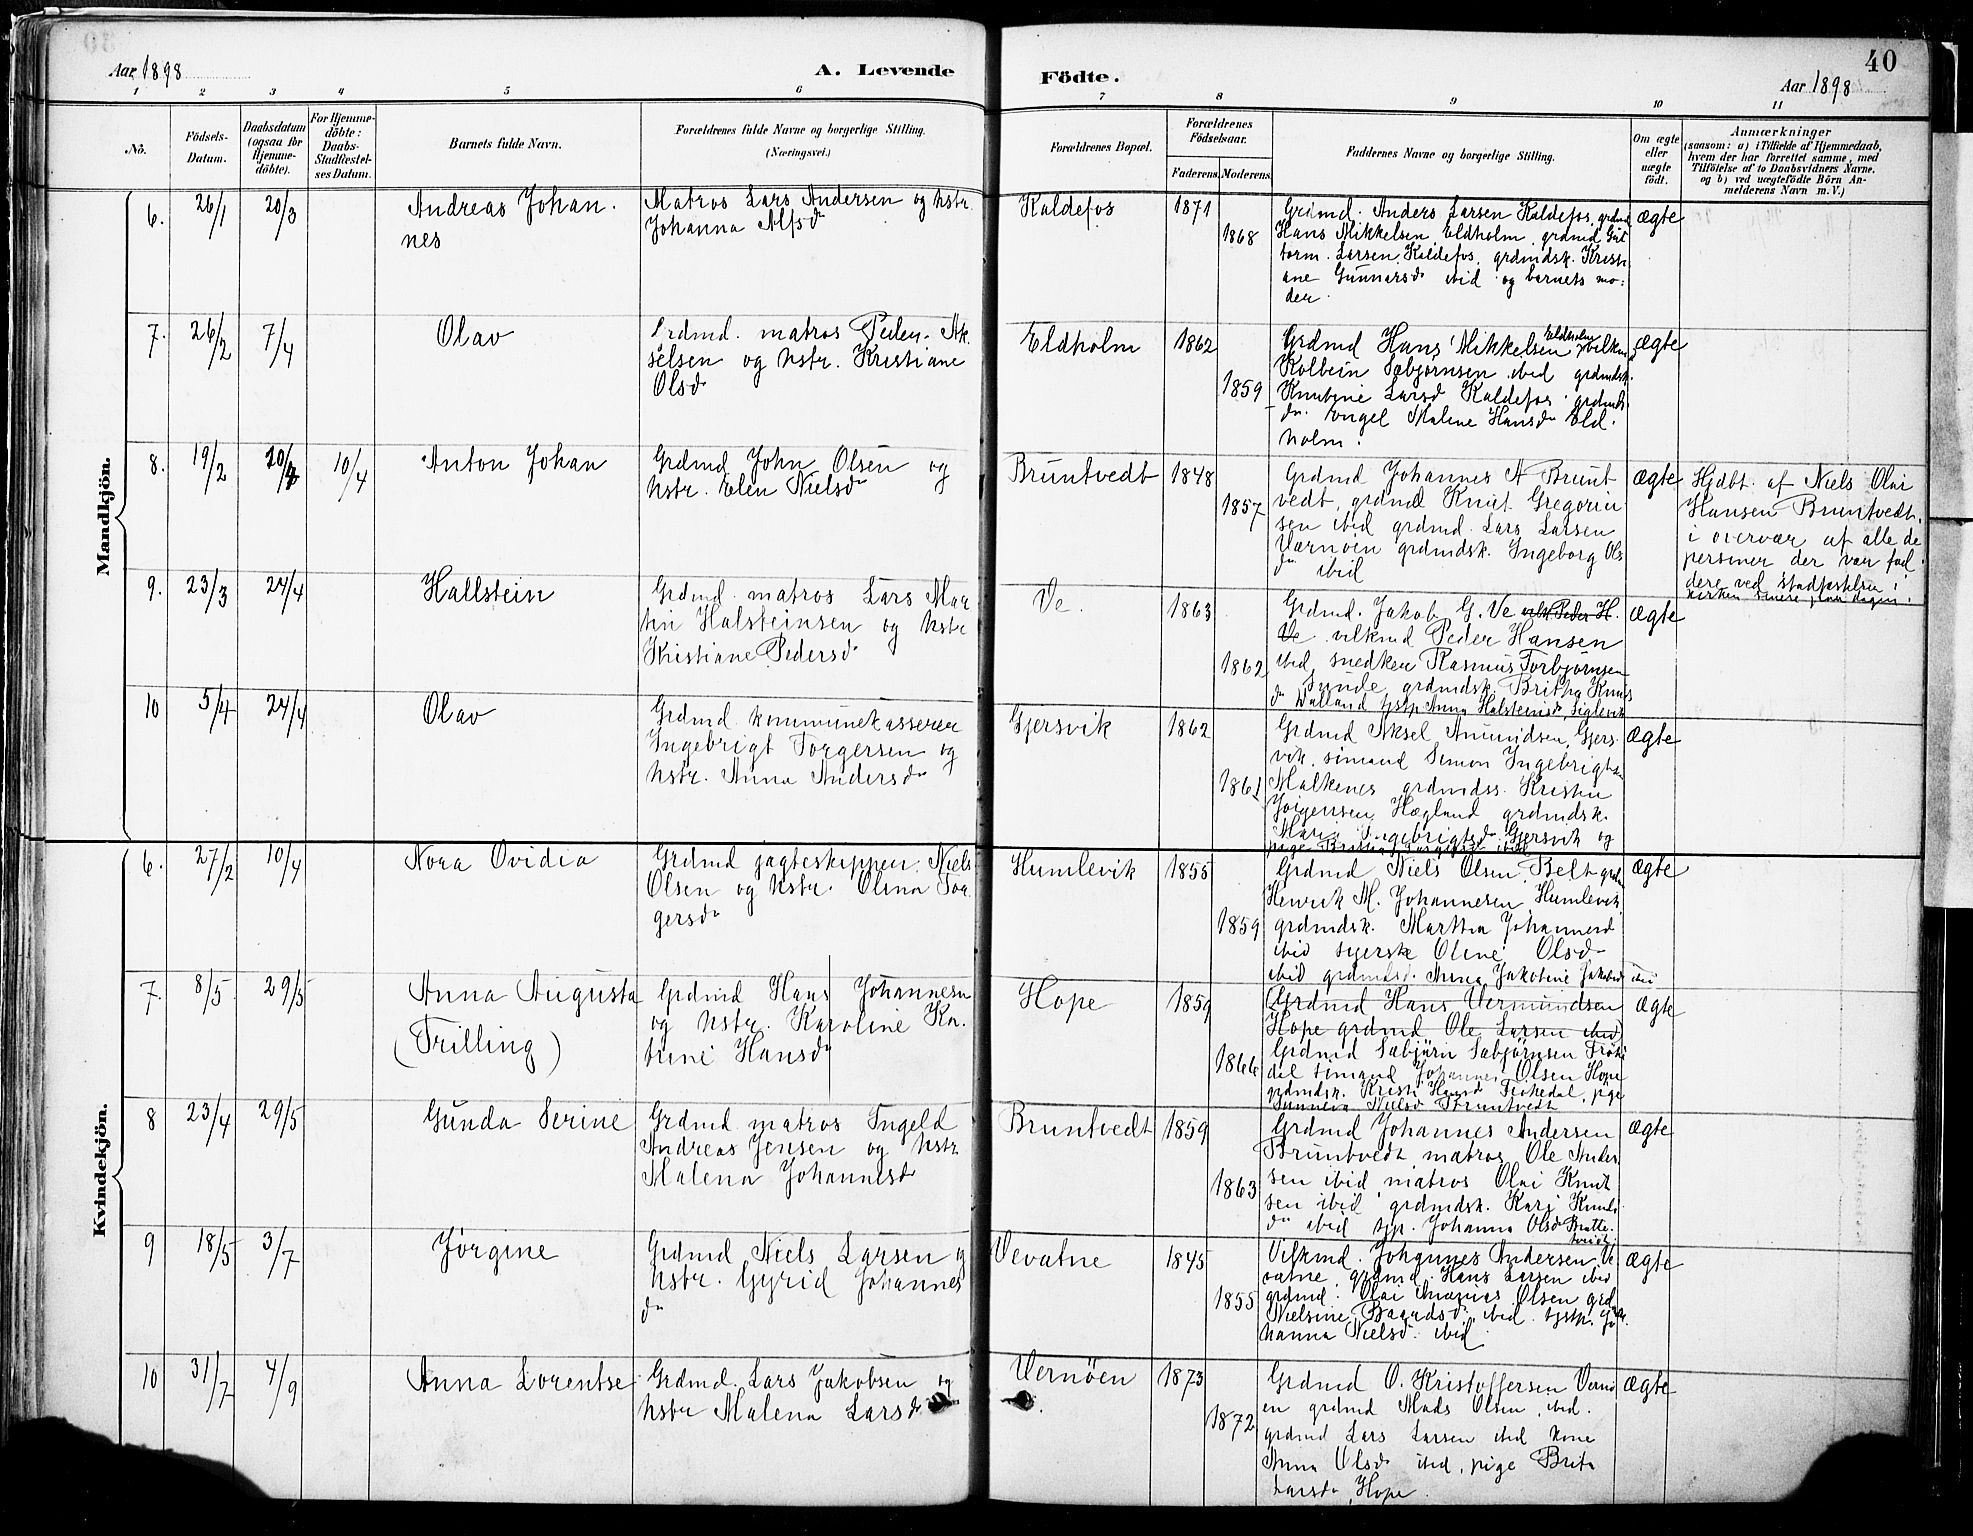 Aar 1898
A. Levende
Födte.
40
Aar 1898
1 2 3 4 5 6 7 8 9 10 11
No.
Födsels-
Datum.
Daabsdatum
(ogsaa for
Hjemme-
döbte).
For Hjemme-
döbte:
Daabs-
Stadfæstel-
ses Datum.
Barnets fulde Navn.
Forældrenes fulde Navne og borgerlige Stilling.
(Næringsvei.)
Forældrenes Bopæl.
Forældrenes
Födselsaar.
Faderens. Moderens.
Faddernes Navne og borgerlige Stilling.
Om ægte
eller
uægte
födt.
Anmærkninger
(saasom: a) i Tilfælde af Hjemmedaab,
hvem der har forrettet samme, med
Tilföielse af to Daabsvidners Navne.
og b) ved uægtefödte Börn An-
melderens Navn m. V.)
Mandkjön.
6. 26/1 20/3
Andreas Johan.
nes
Matros Lars Andersen og hstr.
Johanna Alfsdr
Kaldefos
1871
1868
Grdmd. Anders Larsen Kaldefos, grdmd
Hans Mikkelsen Eldholm, grdmd Gut
torm Larsen Kaldefos, grdmdsk. Kristi
ane Gunnarsdr ibid og barnets mo:
der.
ægte
7. 26/2 7/4
Olav
Grdmd. matros Peder Ak
selsen og hstr. Kristiane
Olsdr
Eldholm
1862
1859
Grdmd Hans Mikkelsen Eldholm
Kolbein Sæbjørnsen ibid grdmdsk.
Knutine Larsd Kaldefos grdmds
dr Malene Hansdr Eld.
holm.
ægte
8. 19/2 10/4
Anton Johan
Grdmd John Olsen og
hstr. Elen Nielsdr
Bruntvedt
1848
1857
Grdmd Johannes A Brunt
vedt, grdmd Knut Gregorius
sen ibid grdmd. Lars Larsen
Værnøen grdmdsk. Ingeborg Ols
dr ibid
ægte
Hjdbt. af Niels Olai
Hansen Bruntvedt.
i overvær af alle de
personer der var fad
dere ved stadfæstelsen i
kirken senere paa dagen.
9. 23/3 24/4
Hallstein
Grdmd. matros Lars Mar
tin Halsteinsen og hstr
Kristiane Pedersdr
Ve.
1863
1862
Grdmd. Jakob G. Ve Peder H.
Ve vilkmd Peder Hansen
ibid, snedker Rasmus Torbjørnsen
Sunde grdmdsk. Britha Knuts
dr Anna Halsteinsdr
ægte
10 5/4 24/4
Olav
Grdmd. kommunekasserer
Ingebrigt Torgersen og
hstr. Anna Andersdr
Gjersvik
1862
1861
Grdmd Aksel Amundsen, Gjers
vik, Simon Ingebrigtsen
Malkenes grdmdss. Kristen
Jørgensen Hægland grdmdsk.
Maria Ingebrigtsdr Gjersvik og
pige
ægte
Kvindekjön.
6. 27/2 10/4
Nora Ovidia
Grdmd jagteskipper Niels
Olsen og hstr. Olina Tor
gersdr
Humlevik
1855
1859
Grdmd Niels Olsen, Belt
Henrik M. Johannesen Humlevik,
grdmdsk. Martha Johannesd
ibid syerske Oline Olsdr
ibid Anna Jakobine
ægte
7. 8/5 29/5
Anna Augusta
(Trilling)
Grdmd Hans Johannesen
og hstr. Karoline Ka
trine Hansdr
Hope
1859
1866
Grdmd Hans Vermundsen
Hope grdmd Ole Larsen ibid)
Grdmd Sæbjørn Sæbjørnsen
Johannes Olsen Hope
grdmdsk. pige
Nielsd Bruntvedt
ægte
8 23/4 29/5
Gunda Serine
Grdmd matros Ingeld
Andreas Jensen og hstr
Malena Johannesdr
Bruntvedt
1859
1863
Grdmd Johannes Andersen
Bruntvedt matros Ole Ander
sen ibid matros Olai Knut
sen ibid grdmdsk. Kari Knuts
dr ibid Johanna Olsdr
ægte
9 18/5 3/7
Jørgine
Grdmd Niels Larsen og
hstr. Gyrid Johannes
dr
Vevatne
1845
1855
Vilkmd. Johannes Andersen Ve
vatne, grdmd. Hans Larsen ibid
grdmd. Olai Olsen
Nielsine Baardsd. ibid Jo
hanna Nielsd. ibid
ægte
10 31/7 4/9
Anna Lorentse
Grdmd. Lars Jakobsen og
hstr Malena Larsdr
Vernöen
1873
1872
Grdmd O. Kristoffersen Vernö
en grdmd Mads Olsen, ibid.
grdmd Lars Larsen ibid kone
Anna Olsdr ibid, pige Brita
Larsdr, Hope.
ægte